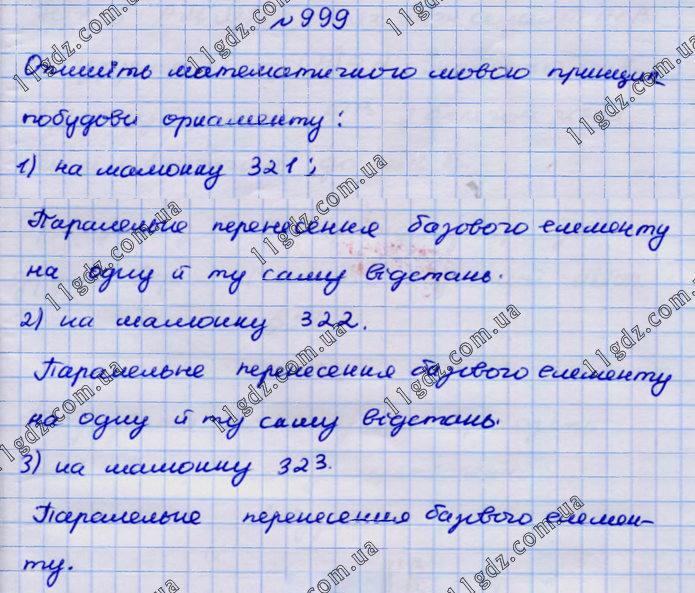 № 999
Опишіть математичною мовою принцип
побудови орнаменту:
1) на малюнку 321;
Паралельне перенесення базового елементу
на одну й ту саму відстань.
2) на малюнку 322.
Паралельне перенесення базового елементу
на одну й ту саму відстань.
3) на малюнку 323.
Паралельне перенесення базового елемен-
ту.
11gdz.com.ua